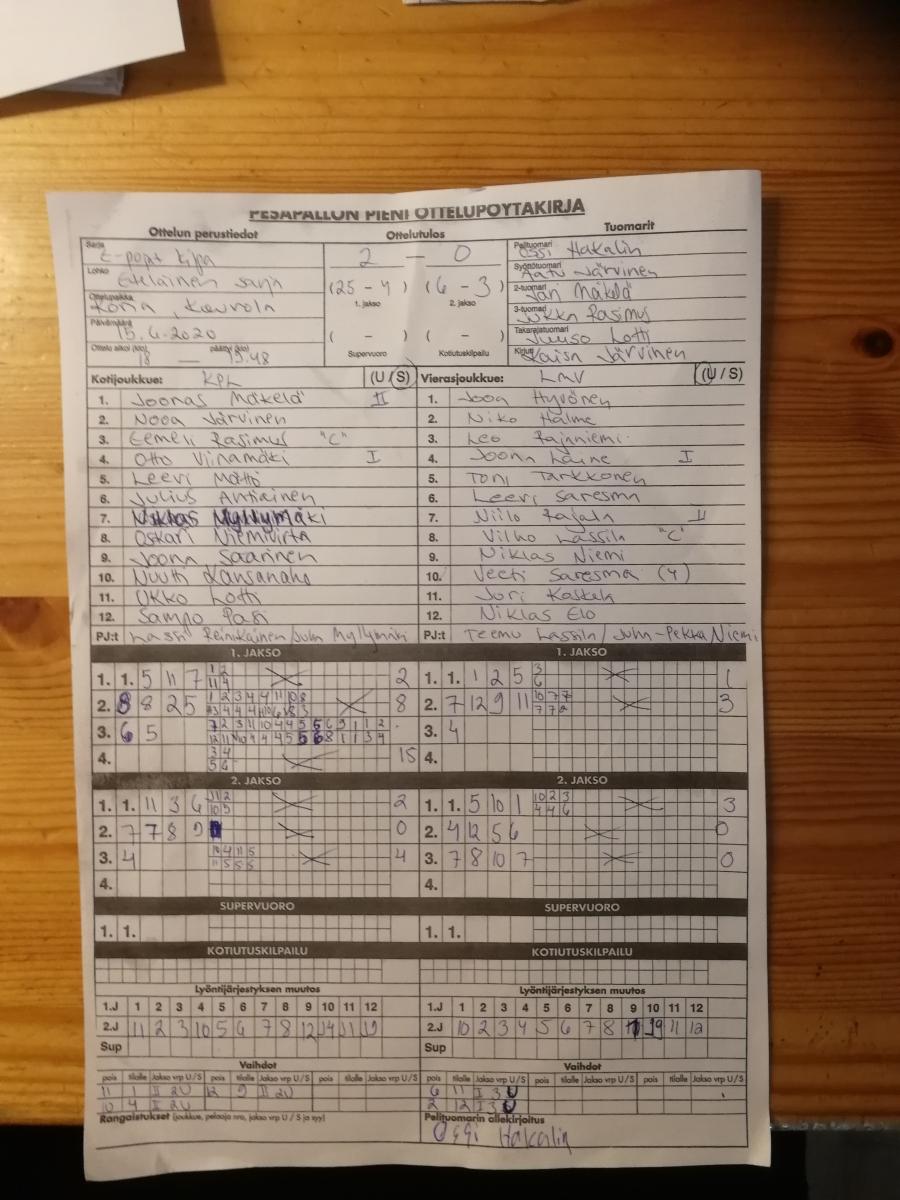 PESÄPALLON PIENI OTTELUPÖYTÄKIRJA
Ottelun perustiedot Ottelutulos Tuomarit
Sarja E-pojat
Lohko Eteläinen
2 — 0
Ottelupaikka Koria, Kouvola
(25 - 4) (6 - 3)
1. jakso 2. jakso
Päivämäärä 15.6.2020
Ottelu alkoi (klo) 18 — päättyi (klo) 19.48
( - ) ( - )
Supervuoro Kotiutuskilpailu
Pelituomari Ossi Hakalin
Syöttötuomari Aatu Järvinen
2-tuomari Jari Mäkelä
3-tuomari Jukka Rasimus
Takarajatuomari Juuso Lotti
Kirjuri Kaisa Järvinen
Kotijoukkue: KPL (U / S)
1. Joonas Mäkelä II
2. Nooa Järvinen
3. Eemeli Rasimus "C"
4. Otto Viinamäki I
5. Leevi Mättö
6. Julius Antiainen
7. Niklas Myllymäki
8. Oskari Niemivirta
9. Joona Saarinen
10. Nuutti Kansanaho
11. Ukko Lotti
12. Sampo Pasi
PJ:t Lassi Reinikainen / Juha Myllymäki
Vierasjoukkue: LMV (U / S)
1. Joona Hyvönen
2. Niko Halme
3. Leo Rajaniemi
4. Joona Laine I
5. Toni Tarkkonen
6. Leevi Saresma
7. Niilo Rajala II
8. Vilho Lassila "C"
9. Niklas Niemi
10. Veeti Saresma (4)
11. Jori Kastala
12. Niklas Elo
PJ:t Teemu Lassila / Juha-Pekka Niemi
1. JAKSO 1. JAKSO
1. 1. 5 11 7 2
2. 8 8 25 8
3. 6 5
4. 15
1. 1. 1 2 5 1
2. 7 12 9 11 3
3. 4
4.
2. JAKSO 2. JAKSO
1. 1. 11 3 6 2
2. 7 7 8 9 0
3. 4 4
4.
1. 1. 5 10 1 3
2. 4 12 5 6 0
3. 7 8 10 7 0
4.
SUPERVUORO SUPERVUORO
1. 1. 1. 1.
KOTIUTUSKILPAILU KOTIUTUSKILPAILU
Lyöntijärjestyksen muutos Lyöntijärjestyksen muutos
1.J 1 2 3 4 5 6 7 8 9 10 11 12
2.J 11 2 3 10 5 6 7 8 12
Sup
1.J 1 2 3 4 5 6 7 8 9 10 11 12
2.J 10 2 3 4 5 6 7 8 11 12
Sup
Vaihdot Vaihdot
pois tilalle Jakso vrp U/S pois tilalle Jakso vrp U/S pois tilalle Jakso vrp U/S
11 1 II 2U 12 9 II 2U
10 4 II 2U
pois tilalle Jakso vrp U/S pois tilalle Jakso vrp U/S pois tilalle Jakso vrp U/S
6 11 I 3U
2 12 I 3U
Rangaistukset (joukkue, pelaaja nro, jakso vrp U / S ja syy)
Pelituomarin allekirjoitus
Ossi Hakalin